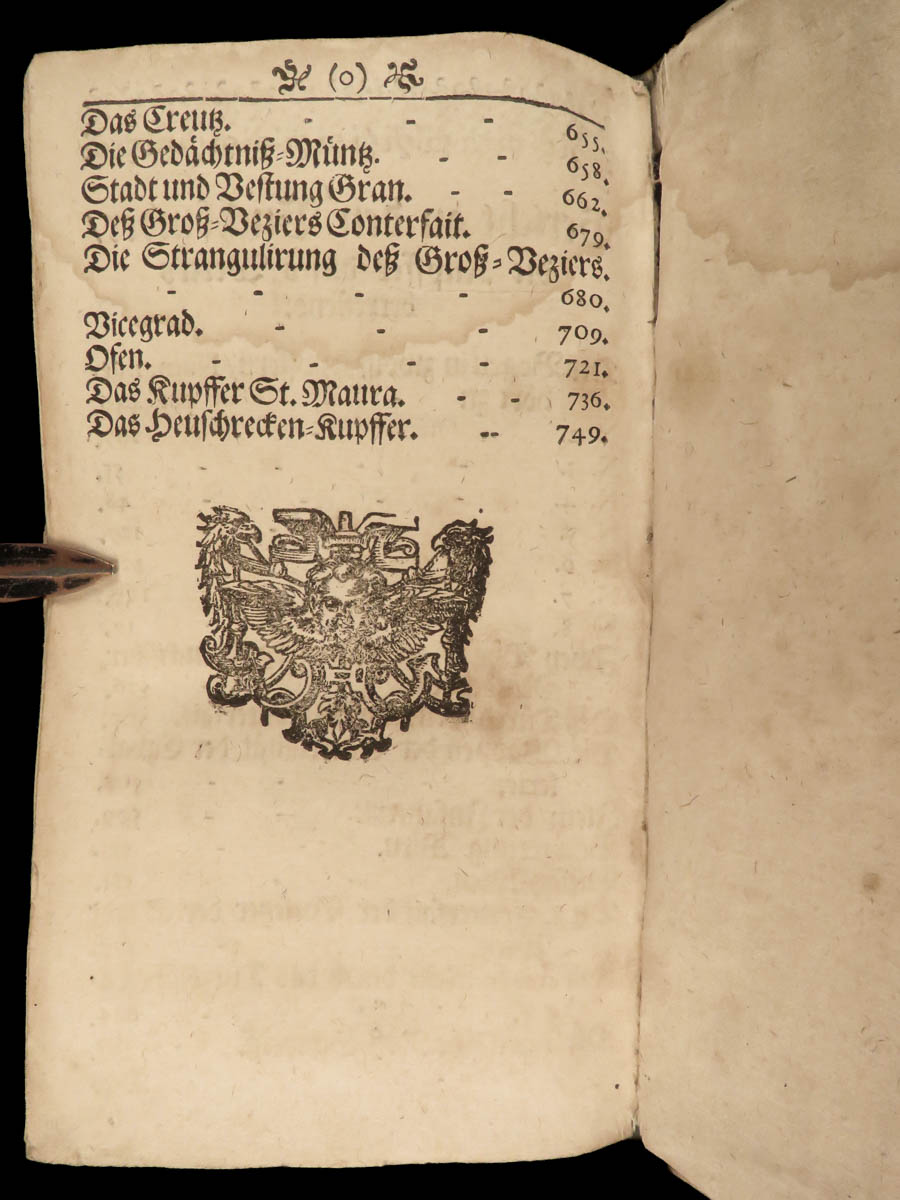 (o)
Das Creutz. - - - 655.
Die Gedächtniß-Müntz. - - 658.
Stadt und Vestung Gran. - - 662.
Deß Groß-Veziers Conterfait. 679.
Die Strangulirung deß Groß-Veziers.
- - - - 680.
Vicegrad. - - - 709.
Ofen. - - - 721.
Das Kupffer St. Maura. - - 736.
Das Heuschrecken-Kupffer. -- 749.